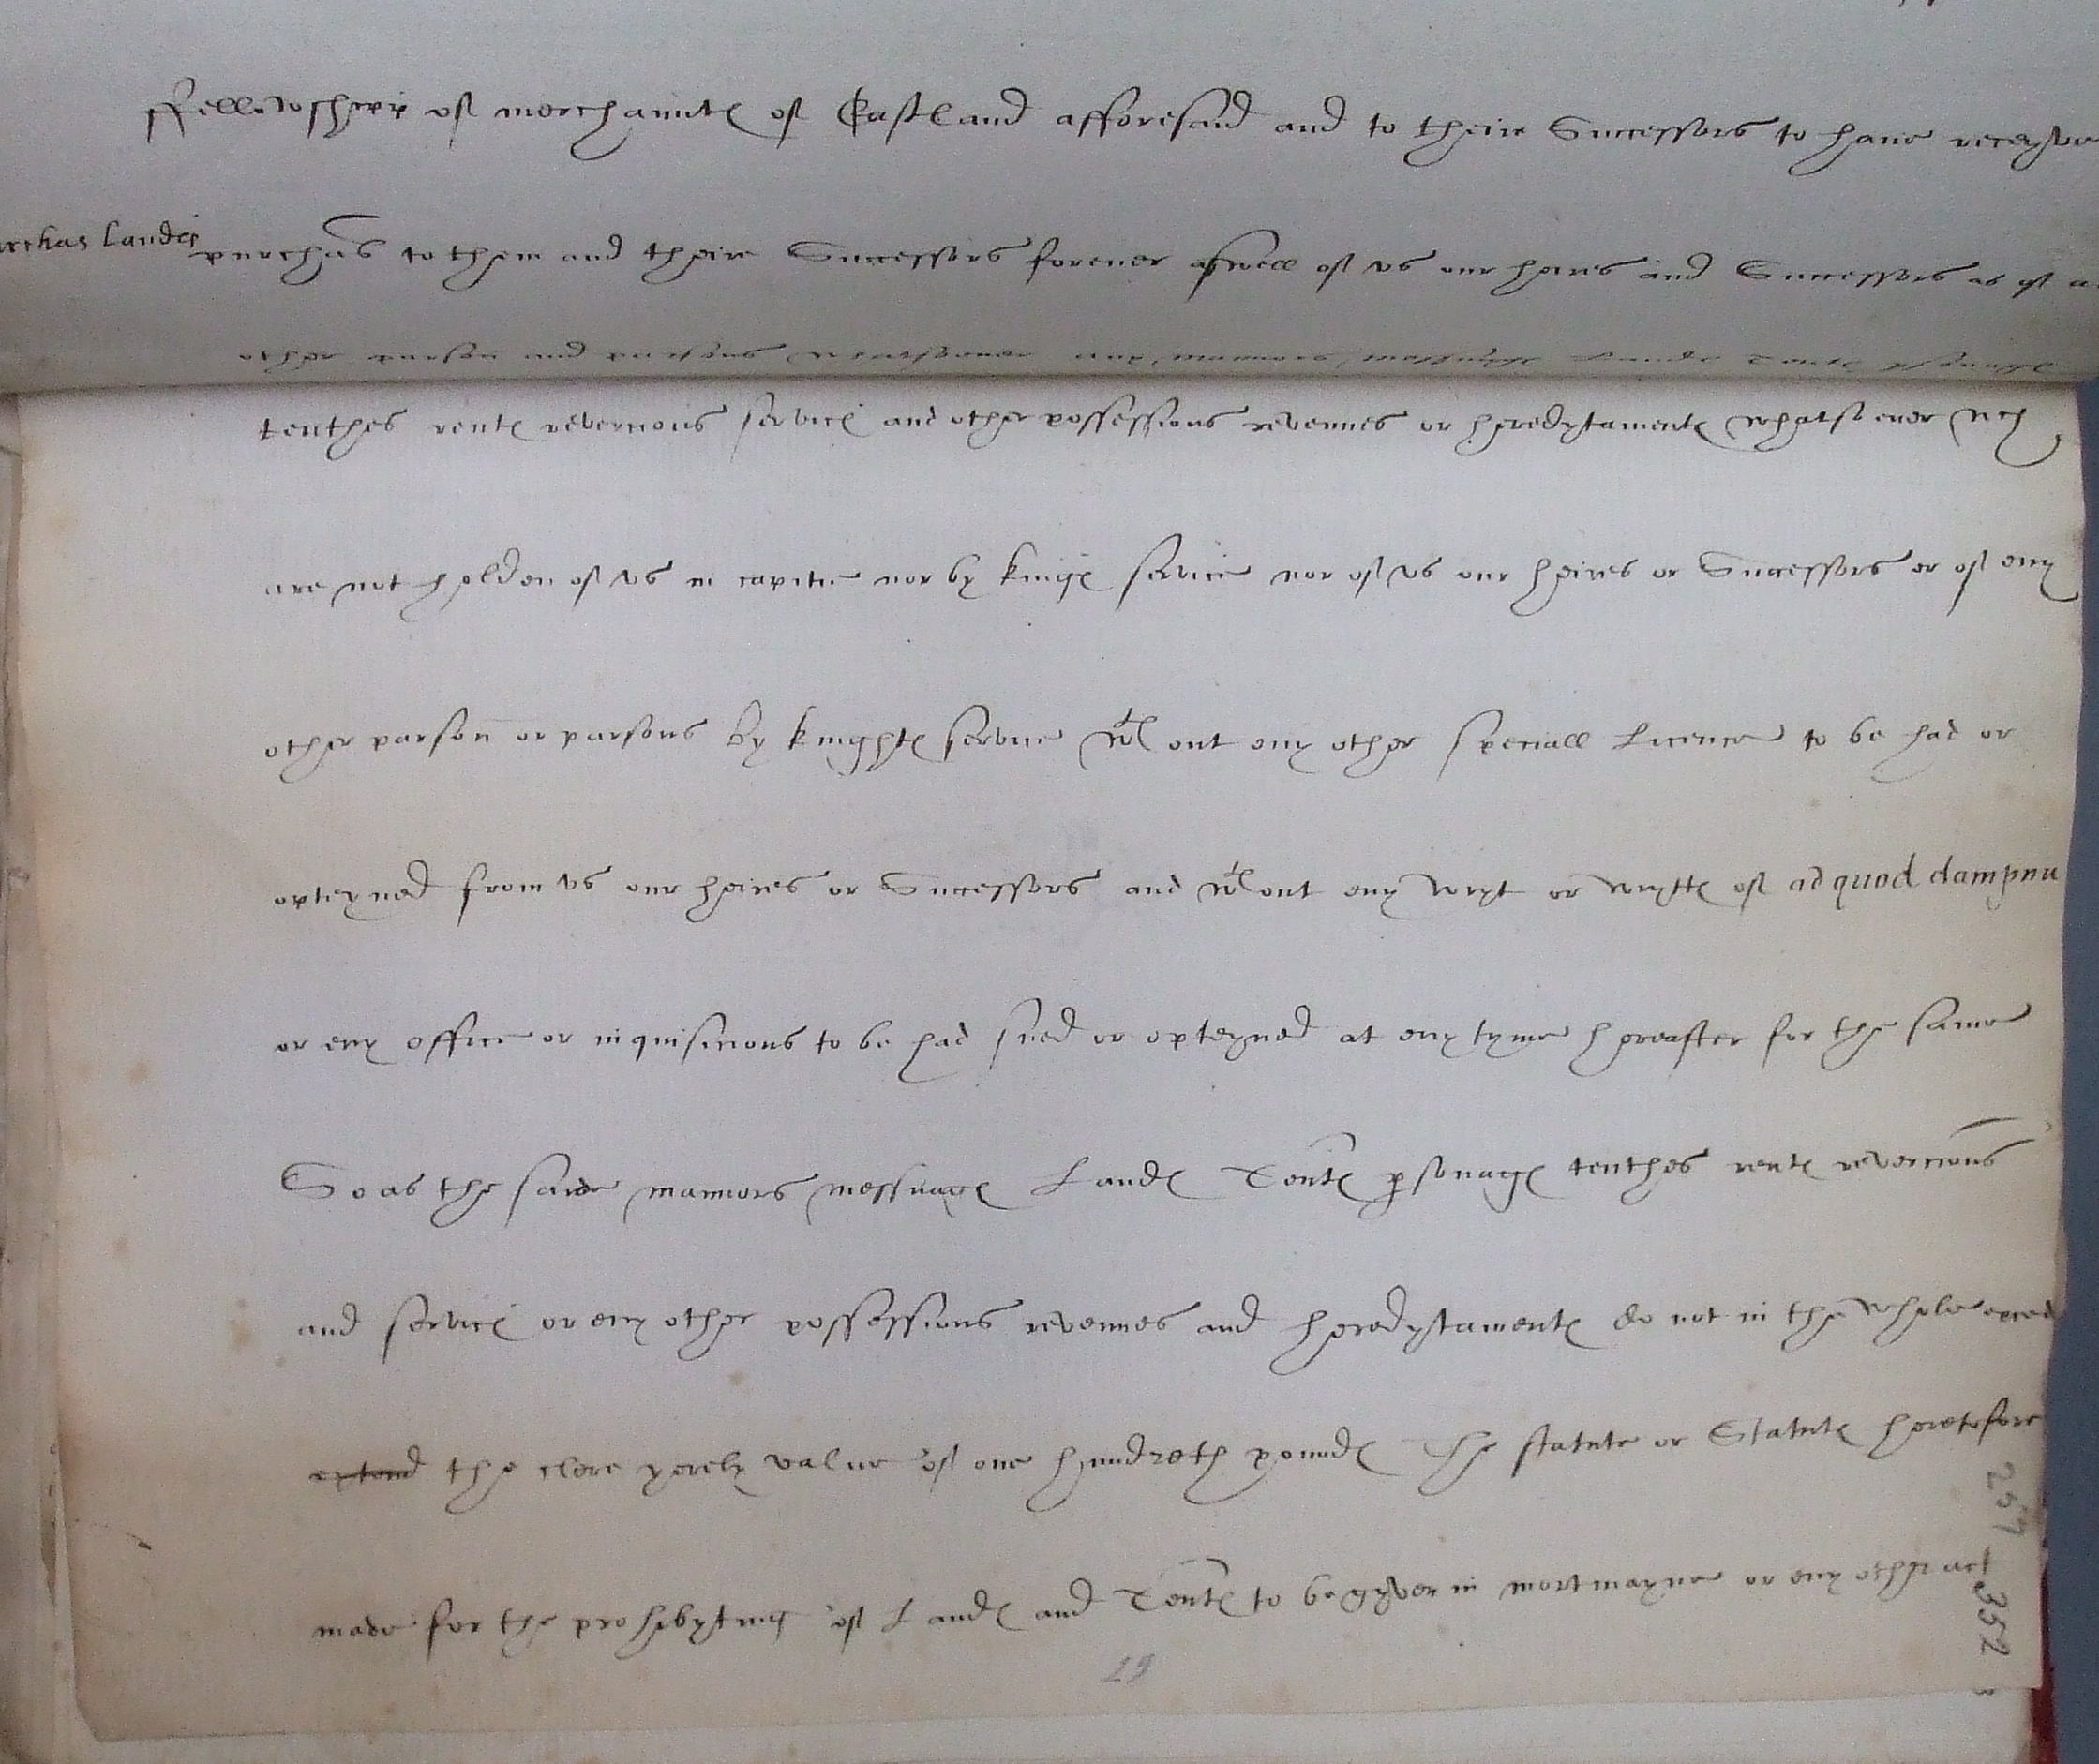 ffellowshipp of merchauntes of Eastland afforesaid and to theire Successors to haue receyve
rchas landes
purchas to them and theire Successors forever aswell of vs our heires and Successors as of a
other parson and parsons whatsoever any mannors messuages Landes Tentes
tenthes rentes revercions services and other possessions revenues or heredytamentes whatsoever wch
are not holden of vs in capitie nor by knightes service nor of vs our heires or Successors or of eny
other parson or parsons by knightes service wthout eny other speciall licence to be had or
opteyned from vs our heires or Successors and wthout eny wryt or wryttes of ad quod dampnu
or eny office or inquisicions to be had sued or opteyned at eny tyme hereafter for the same
So as the saide mannors messuages Landes Tentes psonages tenthes rentes revercions
and services or eny other possessions revenues and heredytamentes do not in the whole exced
extend the clere yerely value of one hundreth poundes The statute or Statutes heretofore
made for the prohibyting of Landes and Tentes to be gyven in mortmayne or eny other act
257
352
29